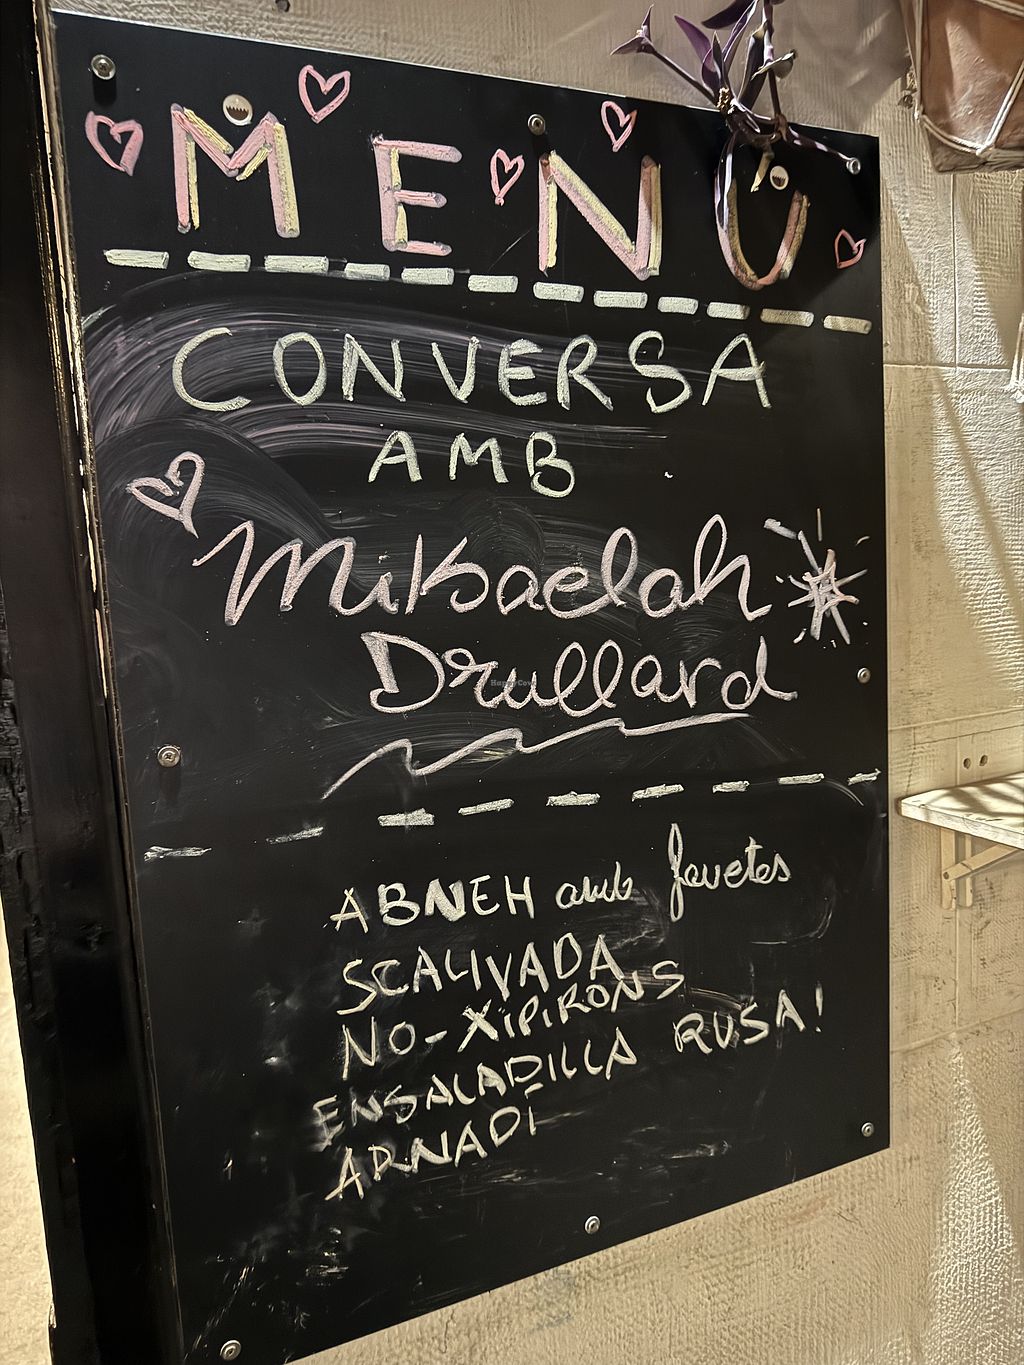 MENÚ
CONVERSA
AMB
Mikaelah
Drullard
ABNEH amb favetes
SCALIVADA
NO-XIPIRONS
ENSALADILLA RUSA!
ARNADÍ
HappyCow